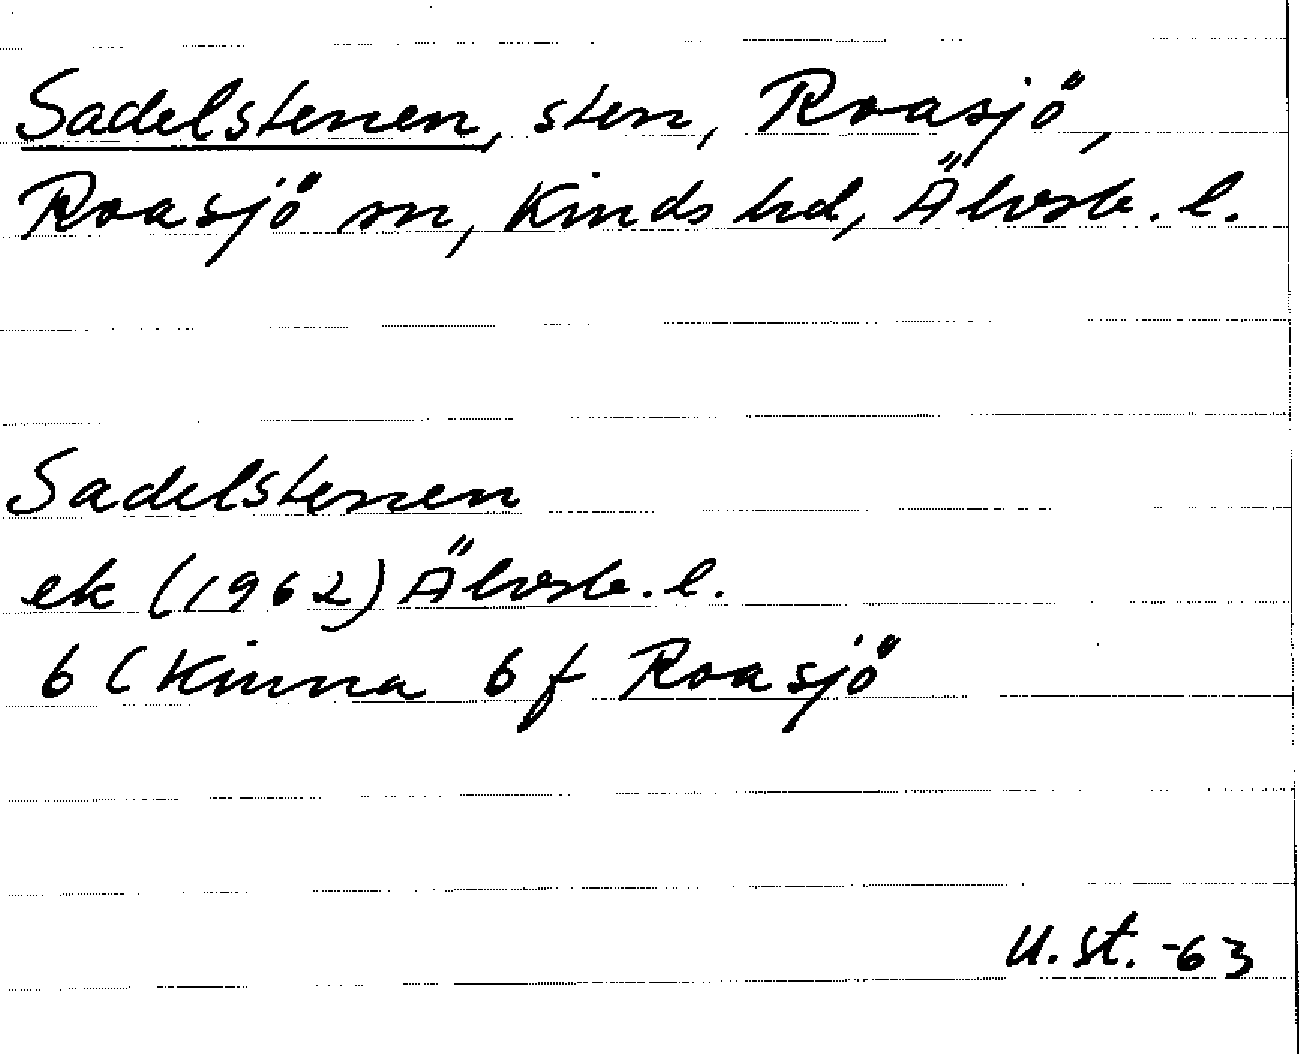 Sadelstenen, sten, Roasjö,
Roasjö sn, Kinds hd, Älvsb. l.
Sadelstenen
ek (1962) Älvsb. l.
6 C Kinna 6 f Roasjö
U. st. -63